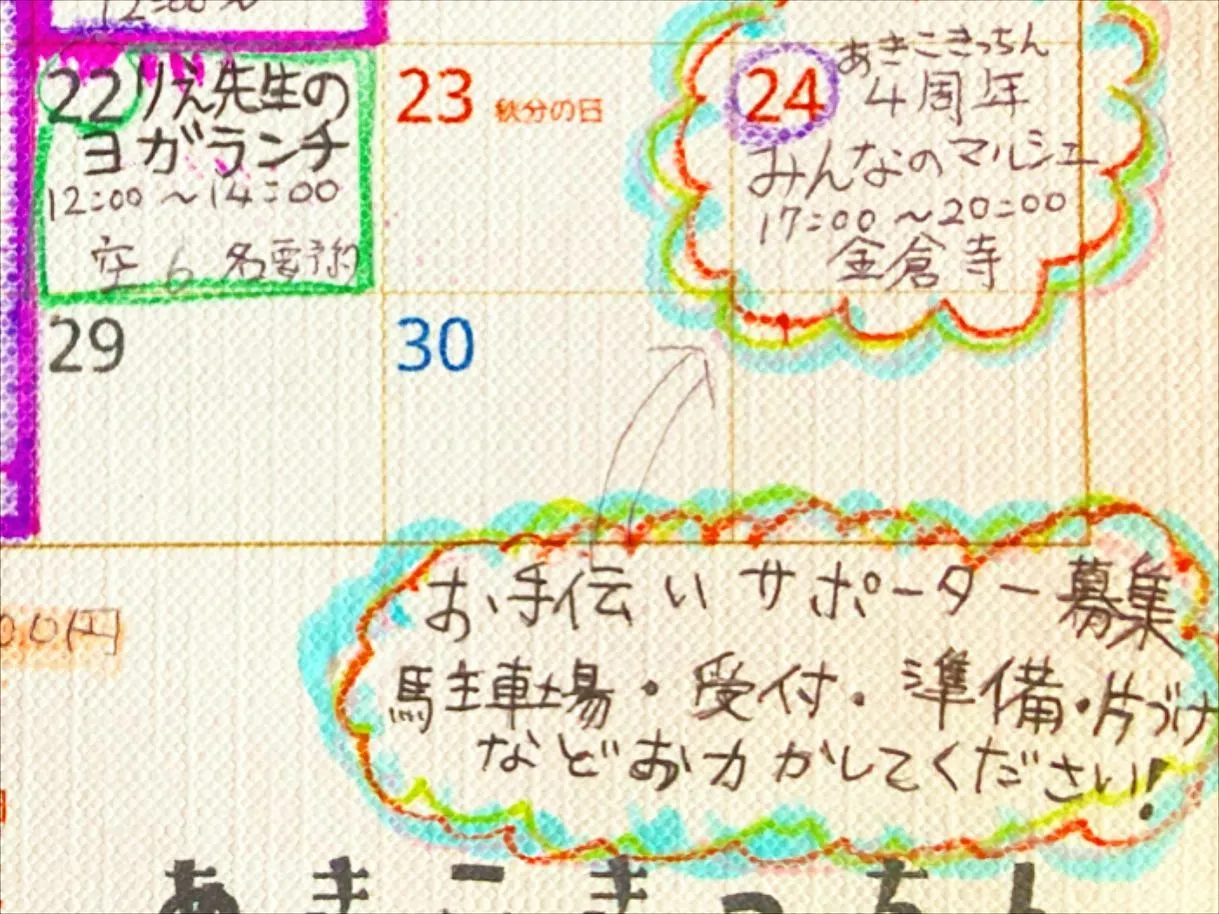 12:00〜
22 りえ先生の
ヨガランチ
12:00 〜14:00
空 6 名要予約
23 秋分の日
24 あきこきっちん
4周年
みんなのマルシェ
17:00 〜20:00
金倉寺
29
30
お手伝いサポーター募集
駐車場・受付・準備・片づけ
などお力かしてください!
00円
あきこきっちん